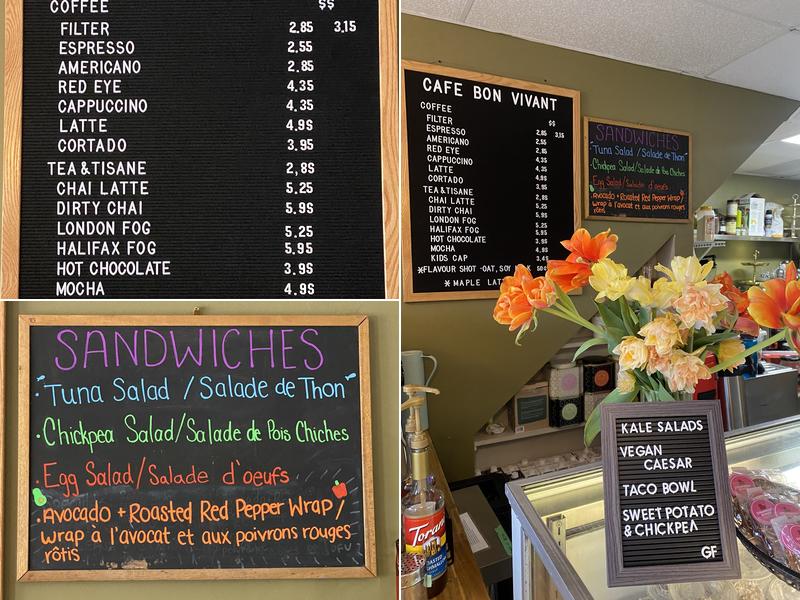 COFFEE $$
FILTER 2.85 3.15
ESPRESSO 2.55
AMERICANO 2.85
RED EYE 4.35
CAPPUCCINO 4.35
LATTE 4.9S
CORTADO 3.95
TEA & TISANE 2,8S
CHAI LATTE 5.25
DIRTY CHAI 5.9S
LONDON FOG 5.25
HALIFAX FOG 5.95
HOT CHOCOLATE 3.9S
MOCHA 4.9S
SANDWICHES
·"Tuna Salad / Salade de Thon"
·Chickpea Salad/Salade de Pois Chiches
·Egg Salad/Salade d'oeufs
·Avocado + Roasted Red Pepper Wrap /
wrap à l'avocat et aux poivrons rouges
rôtis
CAFE BON VIVANT
COFFEE
$$
FILTER 2,85 3,15
ESPRESSO
AMERICANO
RED EYE
CAPPUCCINO
LATTE
CORTADO
TEA & TISANE
CHAI LATTE
DIRTY CHAI
LONDON FOG
HALIFAX FOG
HOT CHOCOLATE
MOCHA
KIDS CAP
*FLAVOUR SHOT -OAT, SOY
* MAPLE LAT
SANDWICHES
"Tuna Salad / Salade de Thon"
·Chickpea Salad/Salade de Pois Chiches
·Egg Salad/Salade d'oeufs
·Avocado + Roasted Red Pepper Wrap/
wrap à l'avocat et aux poivrons rouges
rôtis
KALE SALADS
VEGAN
CAESAR
TACO BOWL
SWEET POTATO
& CHICKPEA
GF
Torani